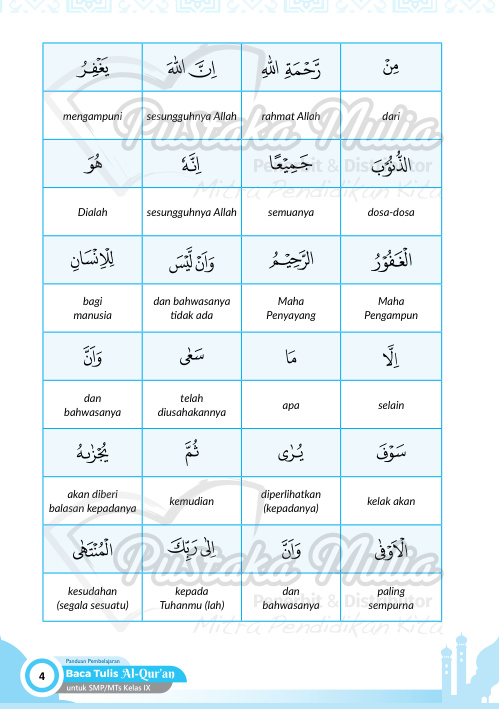 مِنْ رَّحْمَةِ اللّٰهِ اِنَّ اللّٰهَ يَغْفِرُ
mengampuni sesungguhnya Allah rahmat Allah dari
الذُّنُوْبَ جَمِيْعًا اِنَّهٗ هُوَ
Dialah sesungguhnya Allah semuanya dosa-dosa
الْغَفُوْرُ الرَّحِيْمُ وَاَنْ لَّيْسَ لِلْاِنْسَانِ
bagi manusia dan bahwasanya tidak ada Maha Penyayang Maha Pengampun
اِلَّا مَا سَعٰى وَاَنَّ
dan bahwasanya telah diusahakannya apa selain
سَوْفَ يُرٰى ثُمَّ يُجْزٰىهُ
akan diberi balasan kepadanya kemudian diperlihatkan (kepadanya) kelak akan
الْاَوْفٰى وَاَنَّ اِلٰى رَبِّكَ الْمُنْتَهٰى
kesudahan (segala sesuatu) kepada Tuhanmu (lah) dan bahwasanya paling sempurna
Pustaka Mulia
Penerbit & Distributor
Mitra Pendidikan Kita
Pustaka Mulia
Penerbit & Distributor
Mitra Pendidikan Kita
4
Panduan Pembelajaran
Baca Tulis Al-Qur'an
untuk SMP/MTs Kelas IX